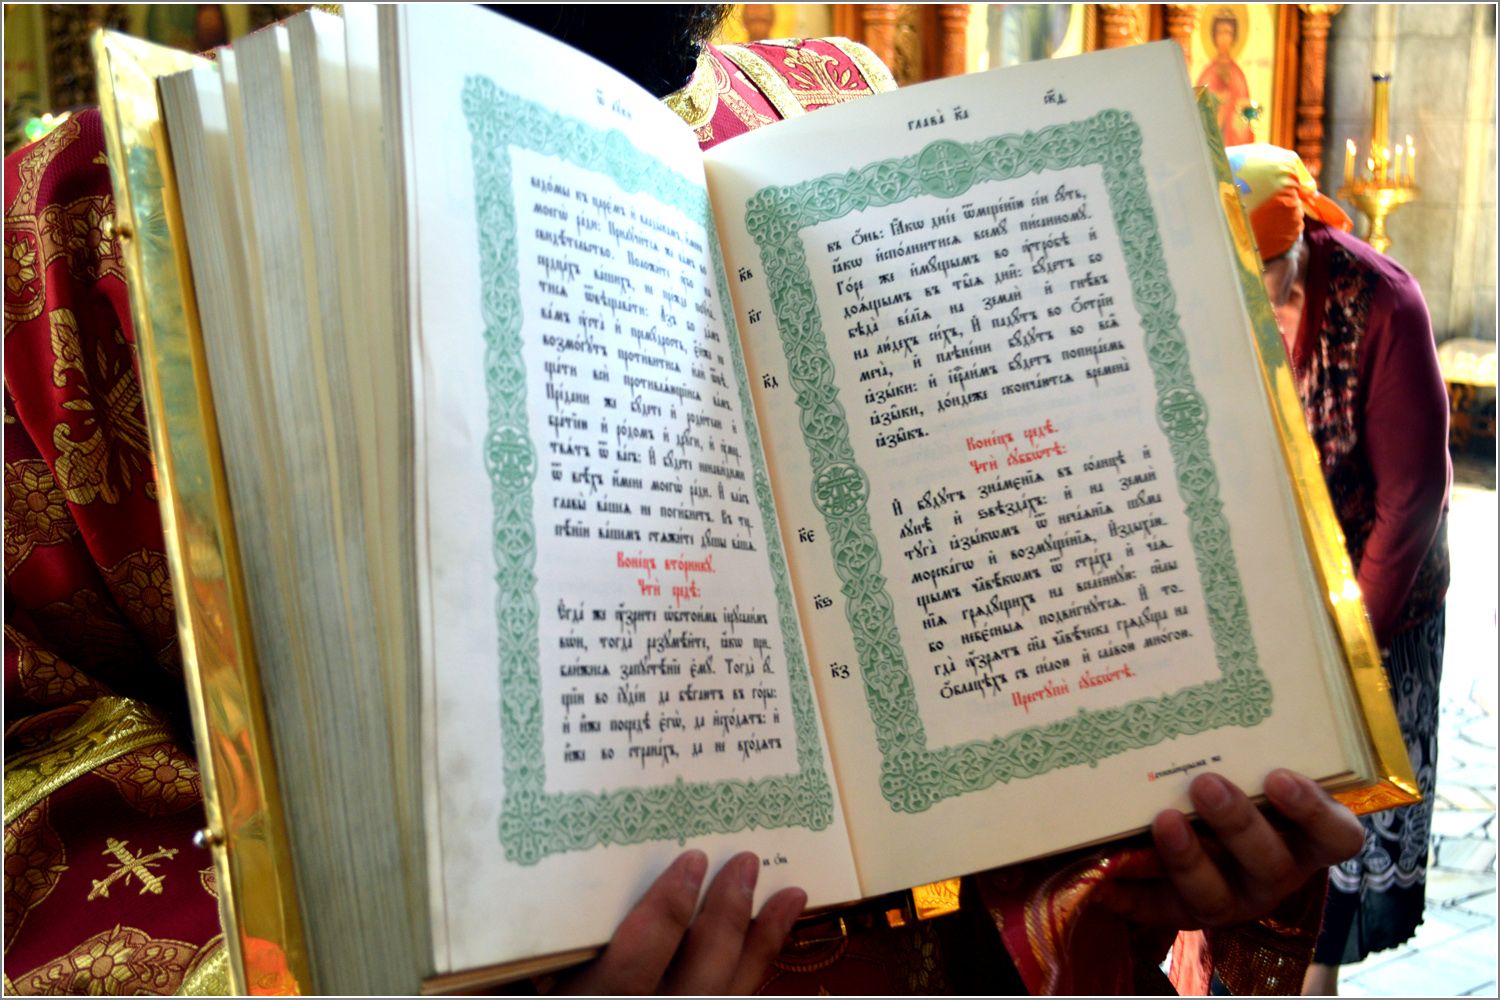 ѿ лꙋки
ведо́мы къ царє́мъ и҆ влады́камъ, и҆́мене
моегѡ̀ ра́ди: Прилꙋчи́тся же ва́мъ во
свидѣ́тельство. Положи́те ᲂу҆̀бо на
сердца́хъ ва́шихъ, не пре́жде поꙋча́-
тися ѿвѣщава́ти: А҆́зъ бо да́мъ
ва́мъ ᲂу҆ста̀ и҆ премꙋ́дрость, є҆́йже не
возмо́гꙋтъ проти́витися и҆лѝ ѿвѣ-
ща́ти всѝ противля́ющїися ва́мъ.
Пре́дани же бꙋ́дете и҆ роди́тели и҆
бра́тїею и҆ ро́домъ и҆ дрꙋ́ги, и҆ ᲂу҆мер-
твя́тъ ѿ ва́съ: И҆ бꙋ́дете ненави́дими
ѿ всѣ́хъ и҆́мене моегѡ̀ ра́ди. И҆ вла́съ
главы̀ ва́шея не поги́бнетъ. Въ тер-
пѣ́нїи ва́шемъ стяжи́те дꙋ́шы ва́шя.
Коне́цъ вто́рникꙋ.
Чтѝ средѣ̀:
Є҆гда́ же ᲂу҆́зрите ѡ҆бстои́мь і҆ерꙋсали́мъ
вѡ́и, тогда̀ разꙋмѣ́йте, ꙗ҆́кѡ при-
бли́жися запꙋстѣ́нїе є҆мꙋ̀. Тогда̀ сꙋ́-
щїи во і҆ꙋде́и да бѣ́гаютъ въ го́ры:
и҆ и҆̀же посредѣ̀ є҆гѡ̀, да и҆схо́дятъ: и҆
и҆̀же во страна́хъ, да не вхо́дятъ
глава̀ к҃а
ск҃д
къ
въ ѻ҆́нь: Ꙗ҆́кѡ дні́е ѿмще́нїю сі́и сꙋ́ть,
ꙗ҆́кѡ и҆спо́лнитися всемꙋ̀ пи́санномꙋ.
к҃г
Го́ре же и҆мꙋ́щымъ во ᲂу҆тро́бѣ и҆
доя́щымъ въ ты̑я дни̑: бꙋ́детъ бо
бѣда̀ ве́лїя на землѝ и҆ гнѣ́въ
к҃д
на лю́дехъ си́хъ, И҆ падꙋ́тъ во ѻ҆́стрїи
меча̀, и҆ плѣне́ни бꙋ́дꙋтъ во всѧ̑
ꙗ҆зы́ки: и҆ і҆ерⷭ҇ли́мъ бꙋ́детъ попира́емь
ꙗ҆зы̑ки, до́ндеже сконча́ются времена̀
ꙗ҆зы̑къ.
Коне́цъ средѣ̀.
Чтѝ сꙋббѡ́тѣ:
к҃є
И҆ бꙋ́дꙋтъ зна́мєнїя въ со́лнцѣ и҆
лꙋнѣ̀ и҆ ѕвѣзда́хъ: и҆ на землѝ
тꙋга̀ ꙗ҆зы́кѡмъ ѿ неча́янїя шꙋ́ма
к҃ѕ
морска́гѡ и҆ возмꙋще́нїя, И҆здыха́ю-
щымъ человѣ́кѡмъ ѿ стра́ха и҆ ча́я-
нїя грядꙋ́щихъ на вселе́ннꙋю: си̑лы
к҃з
бо небє́сныя подви́гнꙋтся. И҆ то-
гда̀ ᲂу҆́зрятъ сн҃а человѣ́ческа грядꙋ́ща на
ѻ҆́блацѣхъ съ си́лою и҆ сла́вою мно́гою.
Престꙋпѝ сꙋббѡ́тѣ.